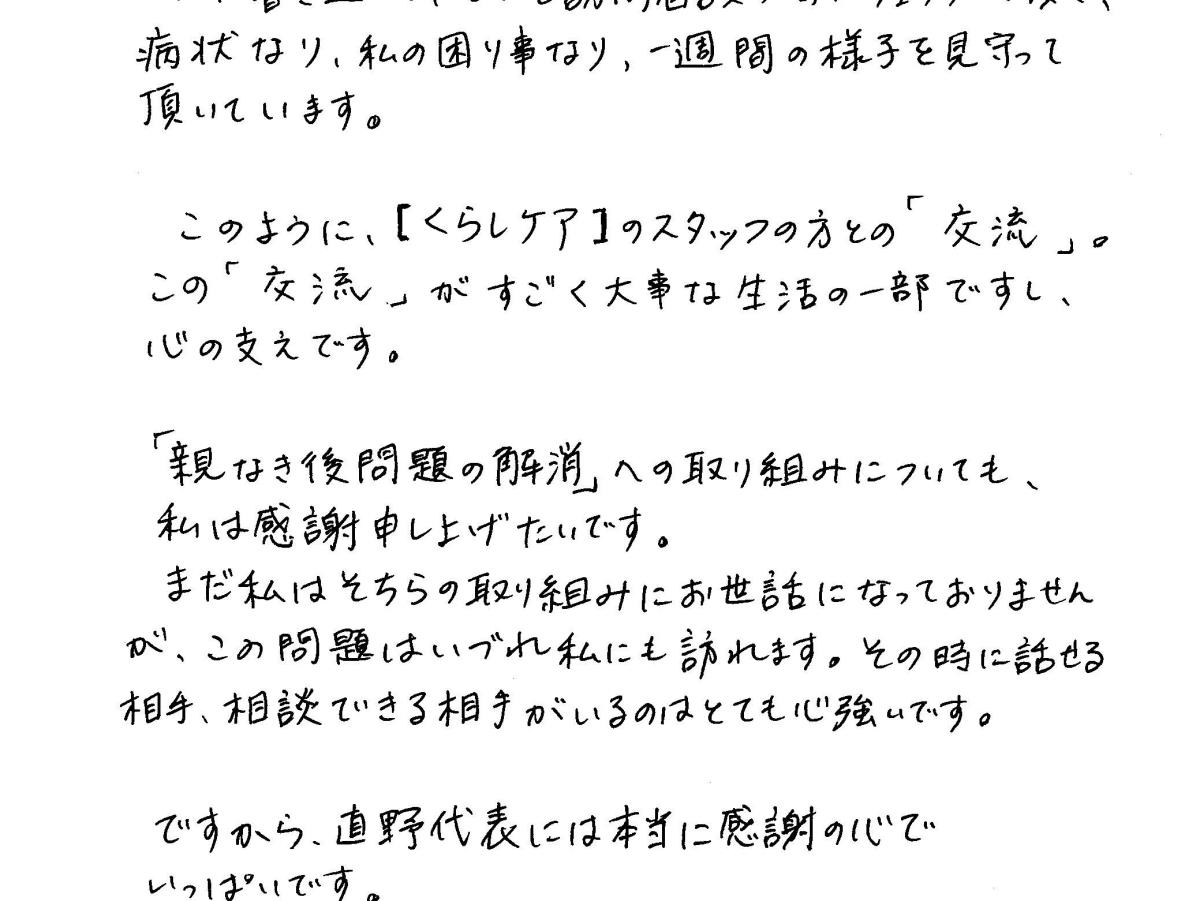 病状なり、私の困り事なり、一週間の様子を見守って
頂いています。
このように、[くらしケア]のスタッフの方との「交流」。
この「交流」がすごく大事な生活の一部ですし、
心の支えです。
「親なき後問題の解消」への取り組みについても、
私は感謝申し上げたいです。
まだ私はそちらの取り組みにお世話になっておりません
が、この問題はいづれ私にも訪れます。その時に話せる
相手、相談できる相手がいるのはとても心強いです。
ですから、直野代表には本当に感謝の心で
いっぱいです。